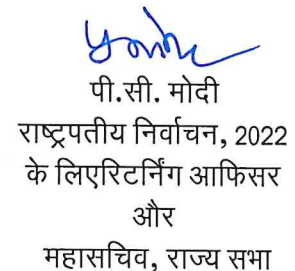 पी.सी. मोदी
राष्ट्रपतीय निर्वाचन, 2022
के लिएरिटर्निंग आफिसर
और
महासचिव, राज्य सभा